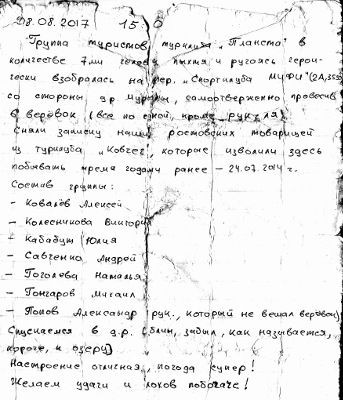 08.08.2017 15:0
Группа туристов турклуба „Планета" в
количестве 7ми голов, пыхтя и ругаясь герои-
чески взобралась на пер. „Спортклуба МИФИ" (2А,
со стороны д.р. самоотверженно провесив
6 верёвок (все по одной, кроме рук-ля)
Сняли записку наших ростовских товарищей
из турклуба „Ковчег", которые изволили здесь
побывать тремя годами ранее – 24.07.2014 г.
Состав группы:
- Ковалёв Алексей
- Колесникова Виктория
- Кабабуш Юлия
- Савченко Андрей
- Гоголева Наталья
- Гончаров Михаил
- Попов Александр (рук., который не вешал верёвок)
Спускаемся в д.р. (блин, забыл, как называется,
короче, к озеру)
Настроение отличная, погода супер!
Желаем удачи и лохов побогаче!